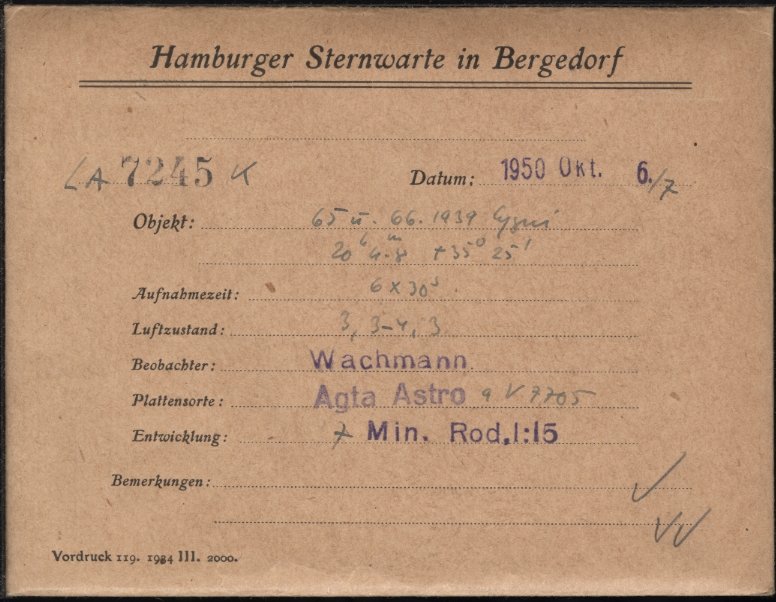 Hamburger Sternwarte in Bergedorf
LA 7245 K Datum: 1950 Okt. 6./7
Objekt: 65 u. 66. 1939 Cygni
20ʰ 4.ᵐ8 +35⁰ 25'
Aufnahmezeit: 6 x 30ˢ.
Luftzustand: 3, 3-4, 3
Beobachter: Wachmann
Plattensorte: Agfa Astro 9 V 7705
Entwicklung: 7 Min. Rod. 1:15
Bemerkungen:
Vordruck 119. 1934 III. 2000.